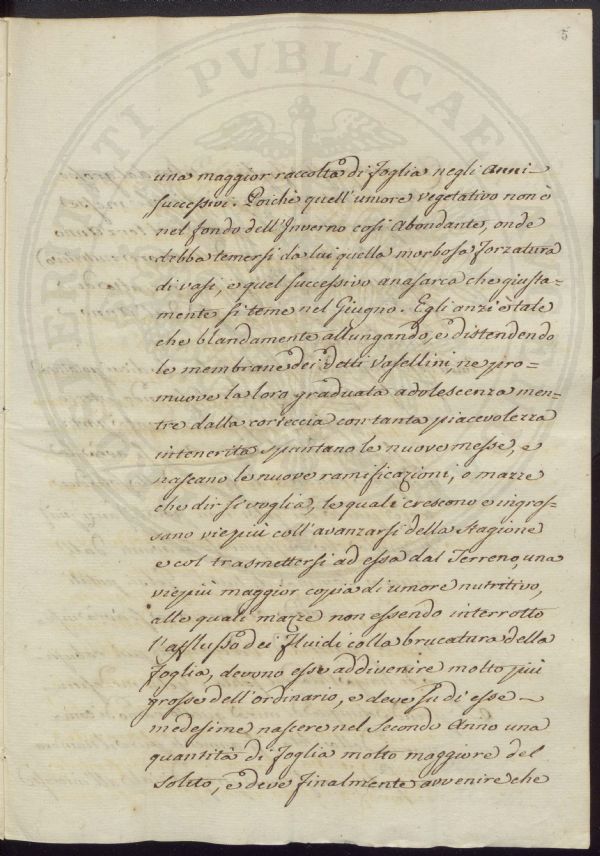 5
PROSPERITATI PVBLICAE
una maggior raccolta di foglia negli Anni
successivi. Poichè quell'umore vegetativo non è
nel fondo dell'Inverno così Abondante, onde
debba temersi da lui quella morbosa forzatura
di vasi, e quel successivo anasarca che giusta=
mente si teme nel Giugno. Egli anzi è tale
che blandamente allungando, e distendendo
le membrane dei detti vasellini, ne pro=
muove la loro graduata adolescenza men=
tre dalla corteccia con tanta piacevolezza
intenerita spuntano le nuove messe, e
nascano le nuove ramificazioni, o mazze
che dir si voglia, le quali crescono e ingros=
sano viepiù coll'avanzarsi della Stagione
e col trasmettersi ad essa dal Terreno, una
viepiù maggior copia di umore nutritivo,
alle quali mazze non essendo interrotto
l'afflusso dei fluidi colla brucatura della
foglia, devono esse addivenire molto più
grosse dell'ordinario, e deve su di esse
medesime nascere nel Secondo Anno una
quantità di foglia molto maggiore del
solito, e deve finalmente avvenire che